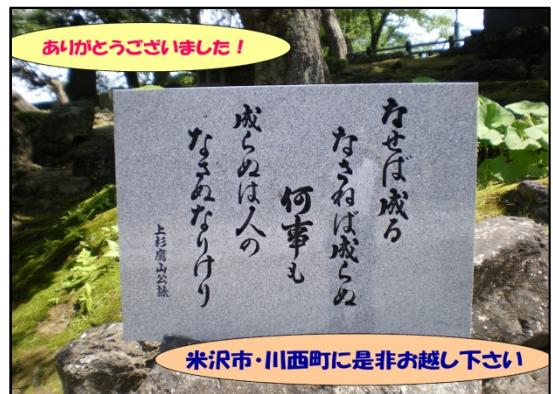 ありがとうございました！
なせば成る
なさねば成らぬ
何事も
成らぬは人の
なさぬなりけり
上杉鷹山公詠
米沢市・川西町に是非お越し下さい